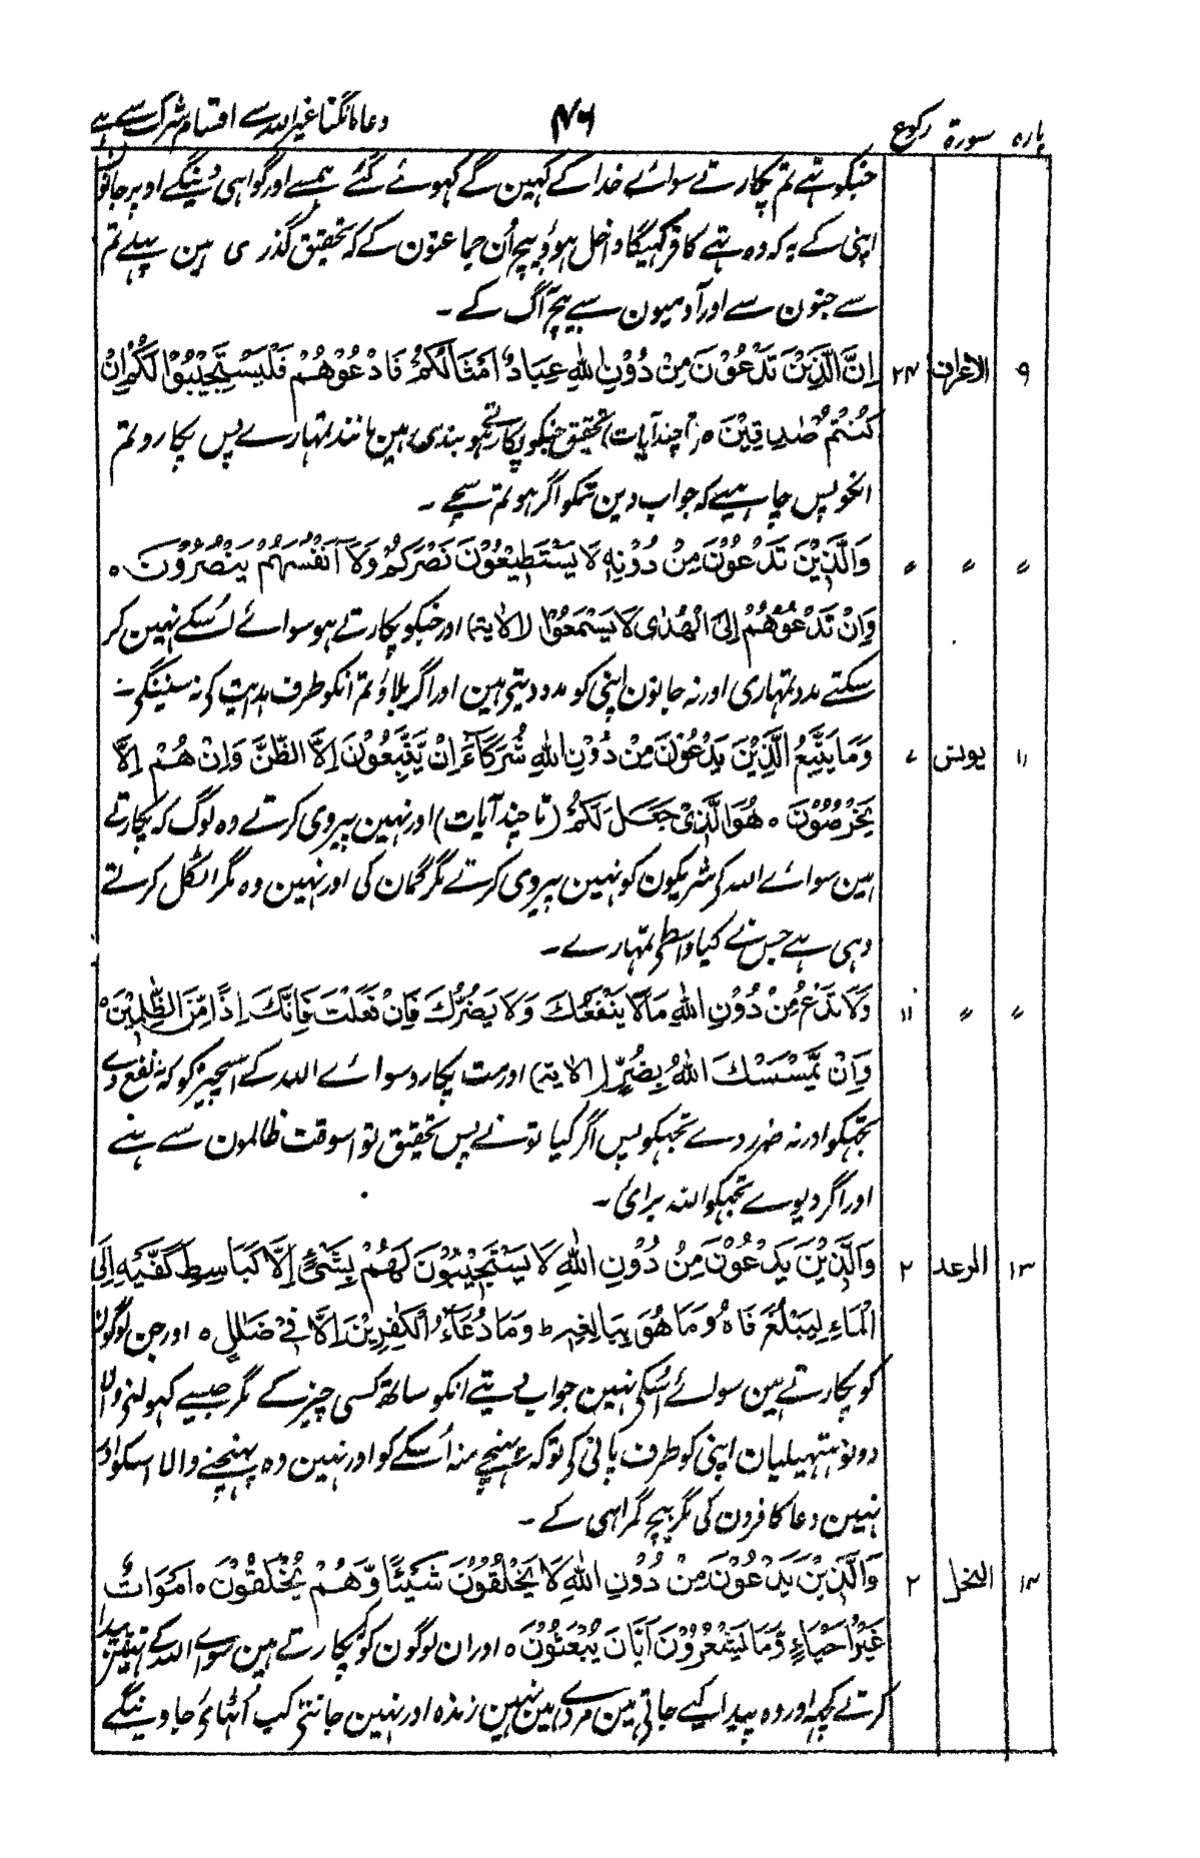 پارہ سورۃ رکوع ۴۶ دعا مانگنا غیر اللہ سے اقسام شرک سے ہے
جنکو تہے تم پکارتے سوائے خدا کے کہین گے کہوئے گئے ہمسے اور گواہی دینگے اوپر جانون
اپنی کے یہ کہ وہ تہے کافر کہیگا داخل ہوؤ بیچ اُن جماعتون کے کہ تحقیق گذری ہین پہلے تم
سے جنون سے اور آدمیون سے بیچ آگ کے ۔
۹ الاعراف ۲۴ اِنَّ الَّذِیْنَ تَدْعُوْنَ مِنْ دُوْنِ اللّٰہِ عِبَادٌ اَمْثَالُکُمْ فَادْعُوْھُمْ فَلْیَسْتَجِیْبُوْا لَکُمْ اِنْ
کُنْتُمْ صٰدِقِیْنَ ہ (تا چند آیات) تحقیق جنکو پکارتے ہو بندی ہین مانند تمہارے پس پکارو تم
انکو پس چاہیے کہ جواب دین تمکو اگر ہو تم سچے ۔
〃 〃 〃 وَالَّذِیْنَ تَدْعُوْنَ مِنْ دُوْنِہٖ لَا یَسْتَطِیْعُوْنَ نَصْرَکُمْ وَلَآ اَنْفُسَہُمْ یَنْصُرُوْنَ ہ
وَاِنْ تَدْعُوْھُمْ اِلَی الْھُدٰی لَا یَسْمَعُوْا (الاٰیۃ) اور جنکو پکارتے ہو سوائے اُسکے نہین کر
سکتے مدد تمہاری اور نہ جانون اپنی کو مدد دیتی ہین اور اگر بلاؤ تم انکو طرف ہدایت کی نہ سنینگی ۔
۱۱ یونس ۷ وَمَا یَتَّبِعُ الَّذِیْنَ یَدْعُوْنَ مِنْ دُوْنِ اللّٰہِ شُرَکَآءَ اِنْ یَّتَّبِعُوْنَ اِلَّا الظَّنَّ وَاِنْ ھُمْ اِلَّا
یَخْرُصُوْنَ ہ ھُوَ الَّذِیْ جَعَلَ لَکُمُ (تا چند آیات) اور نہین پیروی کرتے وہ لوگ کہ پکارتے
ہین سوائے اللہ کی شریکون کو نہین پیروی کرتے مگر گمان کی اور نہین وہ مگر اٹکل کرتے
وہی ہے جس نے کیا واسطی تمہارے ۔
〃 〃 ۱۱ وَلَا تَدْعُ مِنْ دُوْنِ اللّٰہِ مَا لَا یَنْفَعُکَ وَلَا یَضُرُّکَ فَاِنْ فَعَلْتَ فَاِنَّکَ اِذًا مِّنَ الظّٰلِمِیْنَ ہ
وَاِنْ یَّمْسَسْکَ اللّٰہُ بِضُرٍّ (الاٰیۃ) اور مت پکارو سوائے اللہ کے اسچیز کو کہ نہ نفع دے
تجہکو اور نہ ضرر دے تجہکو پس اگر کیا تو نے پس تحقیق تو اسوقت ظالمون سے ہے
اور اگر دیوے تجہکو اللہ برائی ۔
۱۳ الرعد ۲ وَالَّذِیْنَ یَدْعُوْنَ مِنْ دُوْنِ اللّٰہِ لَا یَسْتَجِیْبُوْنَ لَھُمْ بِشَیْءٍ اِلَّا کَبَاسِطِ کَفَّیْہِ اِلَی
الْمَاءِ لِیَبْلُغَ فَاہُ وَمَا ھُوَ بِبَالِغِہٖ ط وَمَا دُعَآءُ الْکٰفِرِیْنَ اِلَّا فِیْ ضَلٰلٍ ہ اور جن لوگون
کو پکارتے ہین سوائے اُسکی نہین جواب دیتے انکو ساتھ کسی چیز کے مگر جیسے کہولنی والا
دونو ہتہیلیان اپنی کو طرف پانی کی تو کہ پہنچے منہ اُسکے کو اور نہین وہ پہنچنے والا اسکو اور
نہین دعا کافرون کی مگر بیچ گمراہی کے ۔
۱۴ النحل ۲ وَالَّذِیْنَ یَدْعُوْنَ مِنْ دُوْنِ اللّٰہِ لَا یَخْلُقُوْنَ شَیْئًا وَّھُمْ یُخْلَقُوْنَ ہ اَمْوَاتٌ
غَیْرُ اَحْیَاءٍ وَّمَا یَشْعُرُوْنَ اَیَّانَ یُبْعَثُوْنَ ہ اور ان لوگون کو پکارتے ہین سوے اللہ کے نہین پیدا
کرتے کچہہ اور وہ پیدا کیے جاتی ہین مردے ہین نہین زندہ اور نہین جانتی کب اُٹہائے جاوینگے